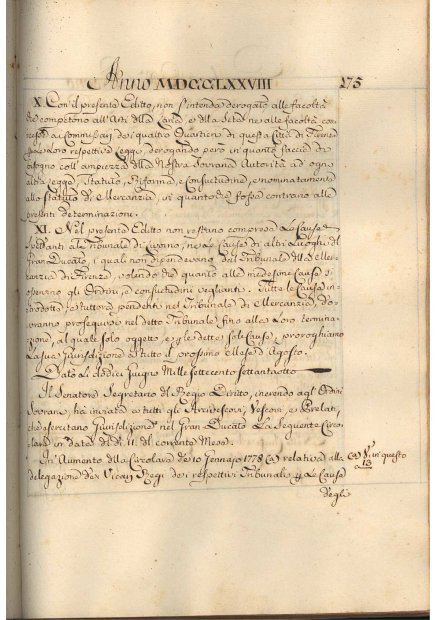 Anno MDCCLXXVIII 175
X. Con il presente Editto, non s'intenda derogato alle facoltà
che competono all'Arti della Lana, e della Seta, ne alle facoltà con-
cesse a Commissarj dei quattro Quartieri di questa Città di Firenze
dalle loro respettive Leggi, derogando però in quanto faccia di
bisogno coll'ampiezza della Nostra Sovrana Autorità ad ogni
altra Legge, Statuto, Riforma, e Consuetudine, e nominatamente
allo Statuto di Mercanzia, in quanto che fosse contrario alle
presenti determinazioni.
XI. Nel presente Editto non restino comprese le Cause
spettanti al Tribunale di Livorno, ne le Cause di altri Luoghi del
Gran Ducato, i quali non dipendevano dal Tribunale di Mer-
canzia di Firenze, volendo che quanto alle medesime Cause si
osservino gli Ordini, e consuetudini veglianti. Tutte le Cause in-
trodotte, e tuttora pendenti nel Tribunale di Mercanzia, do-
vranno proseguirsi nel detto Tribunale fino alla loro termina-
zione, al quale solo oggetto, e per le dette sole Cause, proroghiamo
la sua Giurisdizione a tutto il prossimo Mese d'Agosto.
Dato li dodici Giugno Mille settecento settantaotto
Il Senatore Segretario del Regio Diritto, inerendo agl'Ordini
Sovrani, ha inviata a tutti gli Arcivescovi, Vescovi, e Prelati,
che esercitano Giurisdizione nel Gran Ducato la seguente Circo-
lare in data del dì 11. del corrente Mese.
In Aumento della Circolare de' 10 Gennajo 1778 (a) relativa alla (a) V. in questo
13
delegazione de' Vicarj Regi dei respettivi Tribunali per le Cause
degli